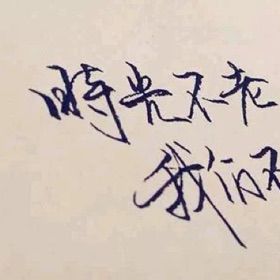 時光不老
我们不